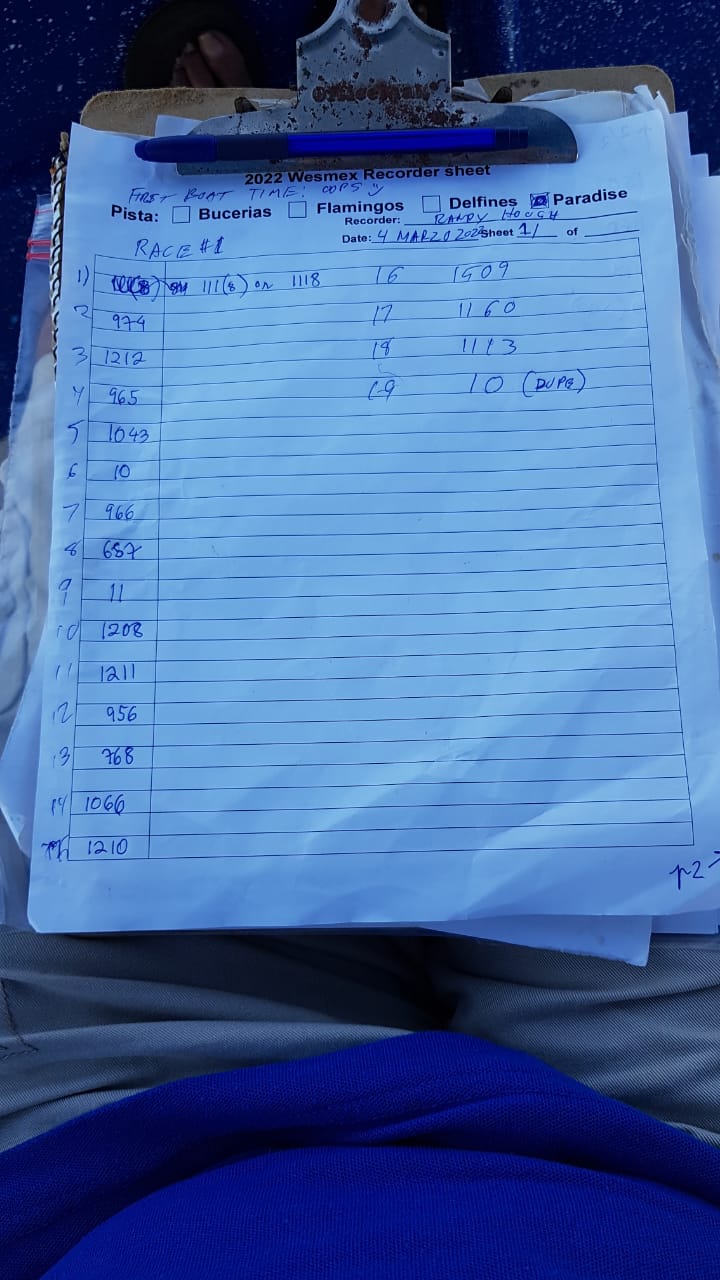 OfficeMax
2022 Wesmex Recorder sheet
FIRST BOAT TIME: OOPS
Pista: Bucerias Flamingos Delfines Paradise
Recorder: RANDY HOUGH
Date: 4 MARZO 2022 Sheet 1/ of
RACE #1
1) 111(8) or 1118 16 1909
2 974 17 1160
3 1212 18 1113
4 965 19 10 (DUPE)
5 1043
6 10
7 966
8 687
9 11
10 1208
11 1211
12 956
13 768
14 1066
15 1210
p2 →